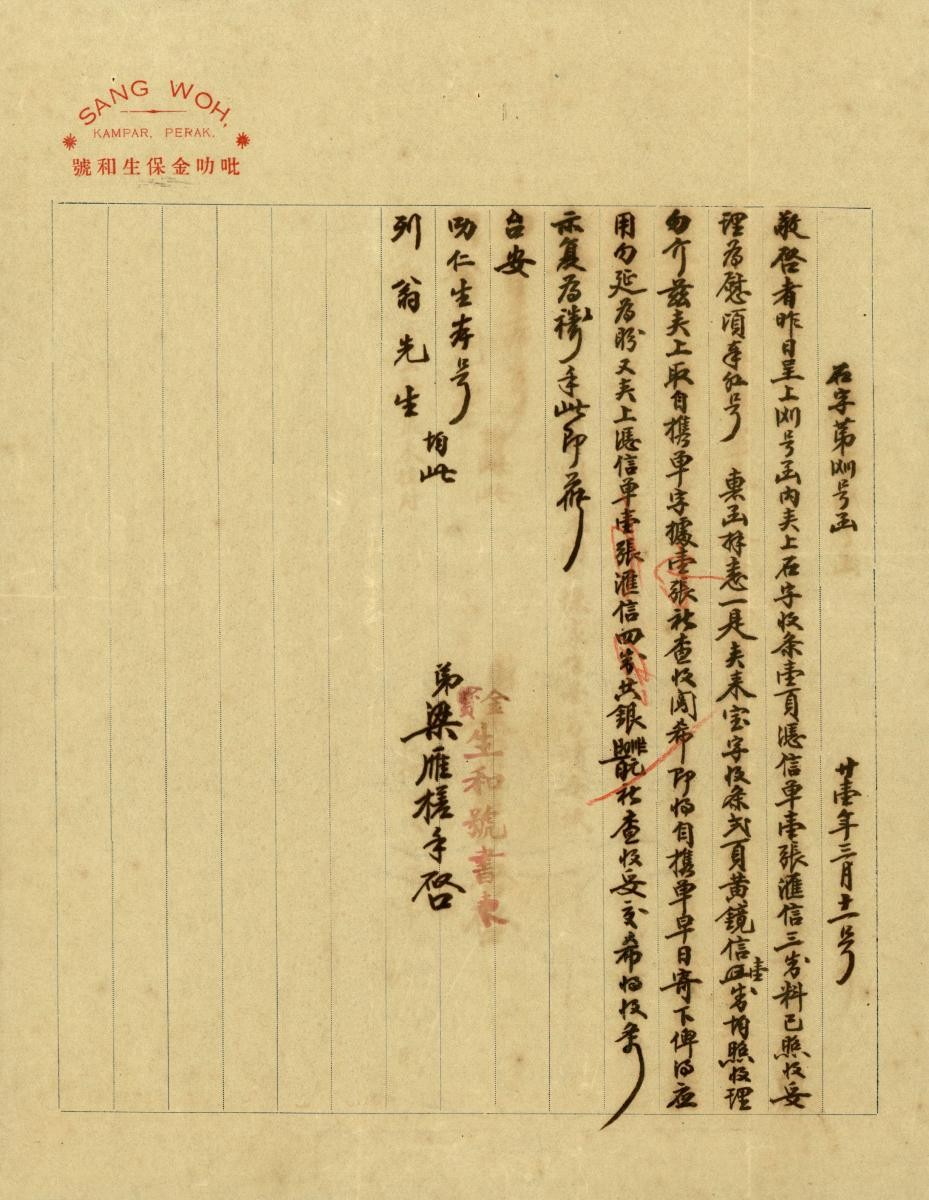 SANG WOH,
KAMPAR, PERAK.
吡叻金保生和號
石字第 号函 廿壹年三月十一号
敬啓者昨日呈上 号函内夹上石字收条壹頁憑信单壹張滙信三封料已照收妥
理為慰頃奉 号 惠函祥悉一是夹来宝字收条弍頁黄鏡信壹封均照收理
勿介兹夹上取自携单字據壹張祈查收閲希即将自携单早日寄下俾得应
用勿延為盼又夹上憑信单壹張滙信四封共銀 祈查收妥交希将收条
示复為禱手此即请
台安
叻仁生本号
列翁先生 均此
弟梁雁槎手啓
金寶
生和號書柬